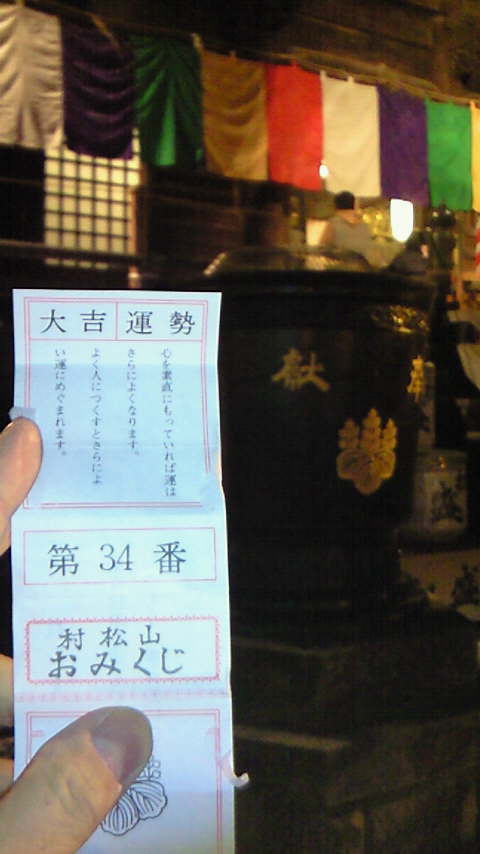 大吉 運勢
心を素直にもっていれば運は
さらによくなります。
よく人につくすとさらによ
い運にめぐまれます。
第34番
村松山
おみくじ
献
奉